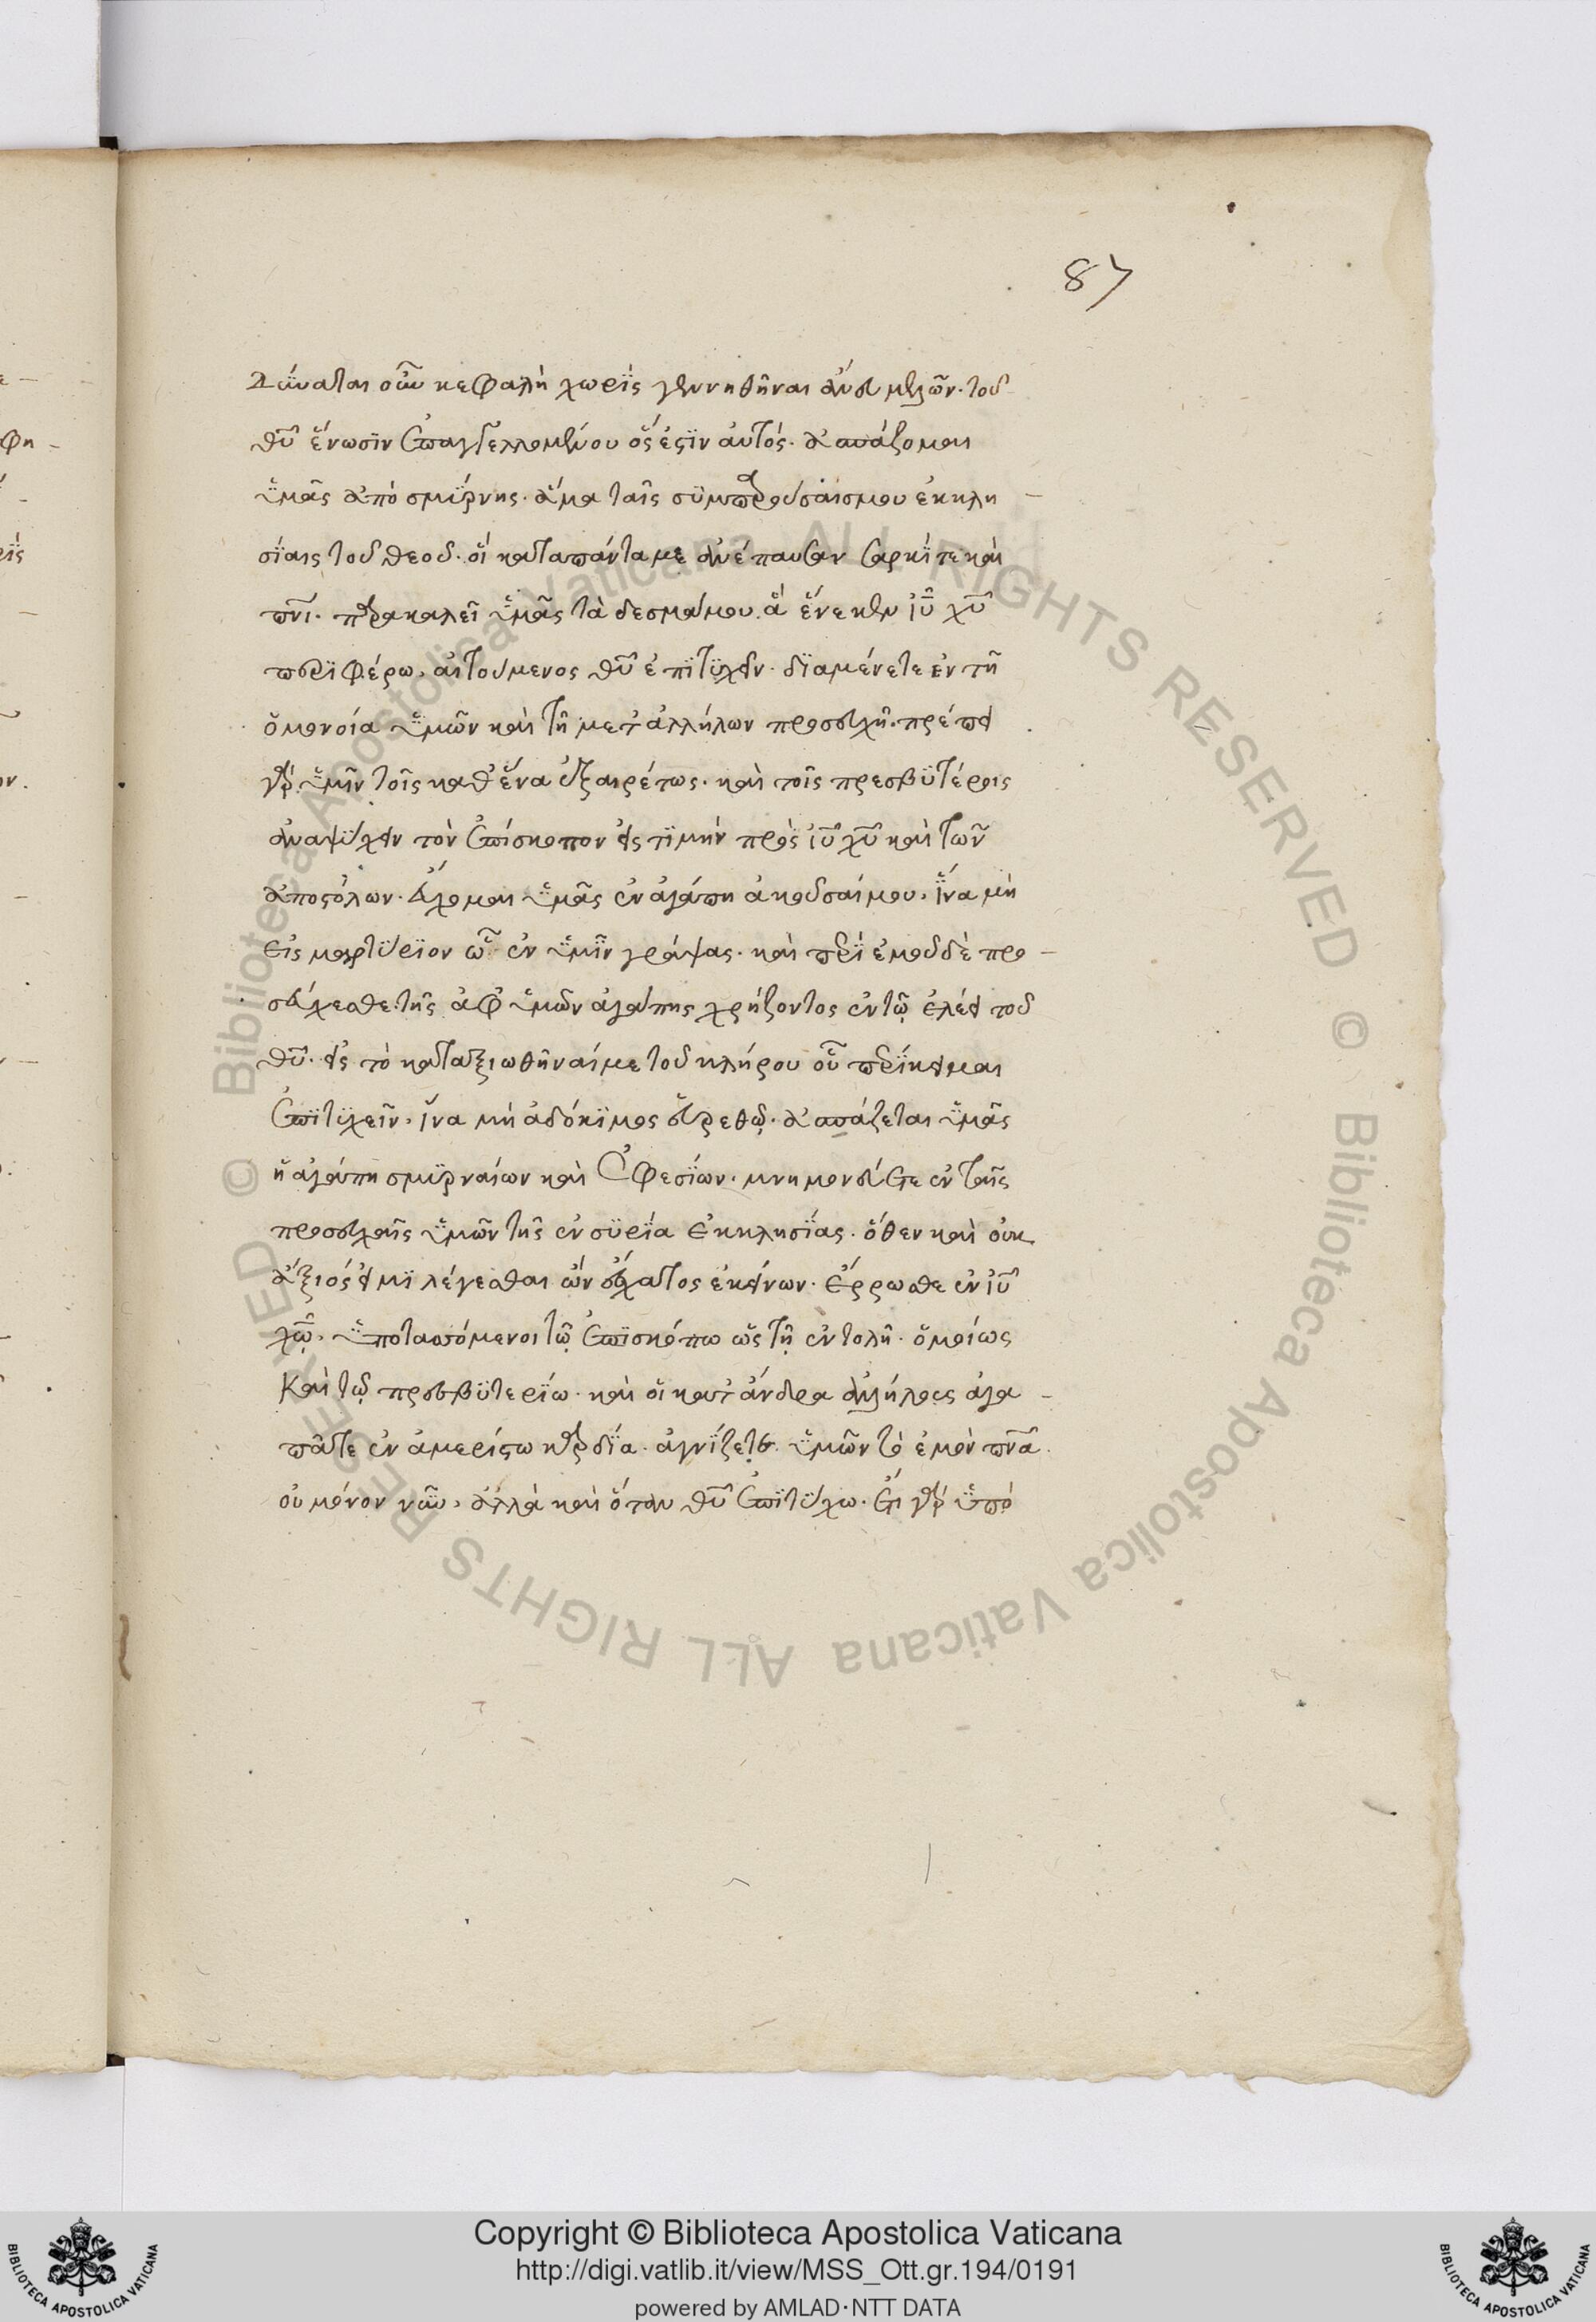 87
δύναται οὖν κεφαλὴ χωρὶς γεννηθῆναι ἄνευ μελῶν. τοῦ
θῡ ἕνωσιν ἐπαγγελλομένου ὅς ἐστιν αὐτός. ἀσπάζομαι
ὑμᾶς ἀπὸ σμύρνης. ἅμα ταῖς συμπαρούσαις μου ἐκκλη
σίαις τοῦ θεοῦ. οἳ κατὰ πάντα με ἀνέπαυσαν σαρκί τε καὶ
πνῑ. παρακαλεῖ ὑμᾶς τὰ δεσμά μου. ἃ ἕνεκεν ἰῡ χῡ
περιφέρω, αἰτούμενος θῡ ἐπιτυχεῖν. διαμένετε ἐν τῇ
ὁμονοία ὑμῶν καὶ τῆ μετ' ἀλλήλων προσευχῆ. πρέπει
γὰρ ὑμῖν τοῖς καθ' ἕνα ἐξαιρέτως. καὶ τοῖς πρεσβυτέροις
ἀναψύχειν τὸν ἐπίσκοπον εἰς τιμὴν πρὸς ἰῡ χῡ καὶ τῶν
ἀποστόλων. εὔχομαι ὑμᾶς ἐν ἀγάπη ἀκοῦσαί μου, ἵνα μὴ
εἰς μαρτύριον ὦ ἐν ὑμῖν γράψας. καὶ περὶ ἐμοῦ δὲ προ
σεύχεσθε. τῆς ἀφ' ὑμῶν ἀγάπης χρήζοντος ἐν τῷ ἐλέει τοῦ
θῡ. εἰς τὸ καταξιωθῆναί με τοῦ κλήρου οὗ περίκειμαι
ἐπιτυχεῖν, ἵνα μὴ ἀδόκιμος εὑρεθῶ. ἀσπάζεται ὑμᾶς
ἡ ἀγάπη σμυρναίων καὶ ἐφεσίων. μνημονεύετε ἐν ταῖς
προσευχαῖς ὑμῶν τῆς ἐν συρία ἐκκλησίας. ὅθεν καὶ οὐκ
ἄξιός εἰμι λέγεσθαι ὢν ἔσχατος ἐκείνων. ἔρρωσθε ἐν ἰῡ
χῷ. ὑποτασσόμενοι τῷ ἐπισκόπω ὡς τῇ ἐντολῆ. ὁμοίως
καὶ τῷ πρεσβυτερίω. καὶ οἱ κατ' ἄνδρα ἀλλήλους ἀγα
πᾶτε ἐν ἀμερίστω καρδία. ἁγνίζετε ὑμῶν τὸ ἐμὸν πνᾱ.
οὐ μόνον νῦν, ἀλλὰ καὶ ὅταν θῡ ἐπιτύχω. ἔτι γὰρ ὑπὸ
Copyright © Biblioteca Apostolica Vaticana
http://digi.vatlib.it/view/MSS_Ott.gr.194/0191
powered by AMLAD·NTT DATA